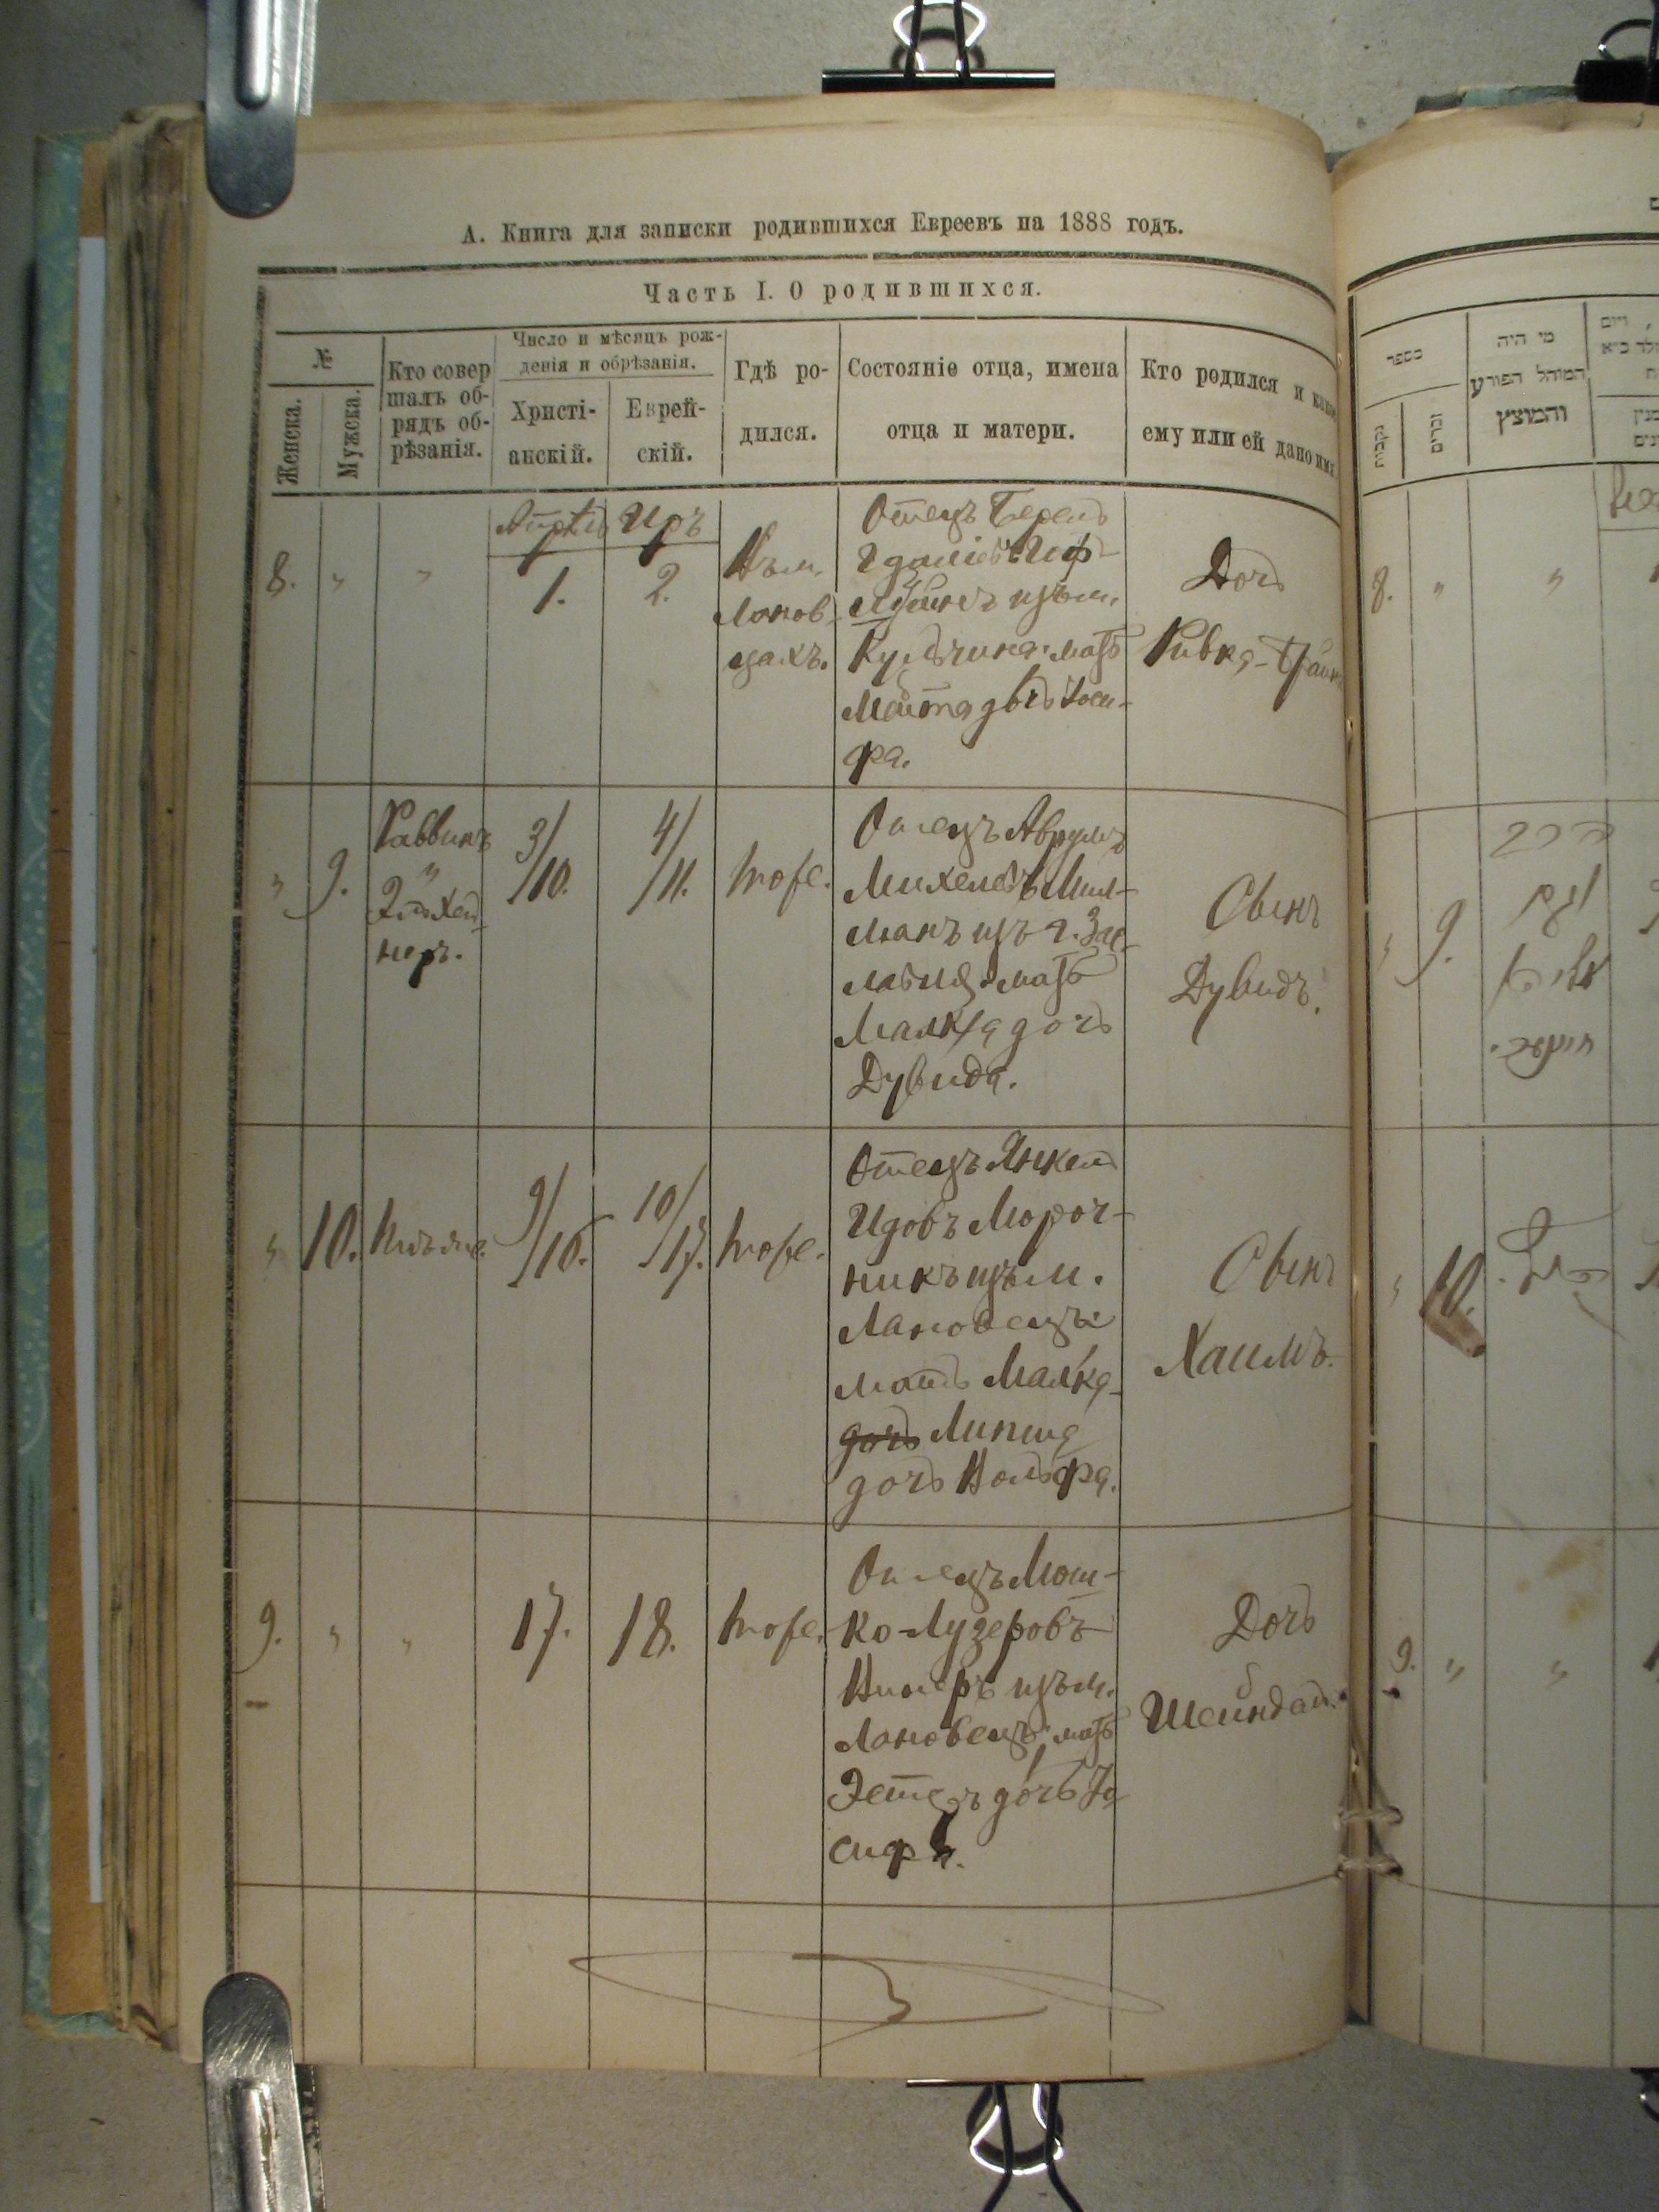 А. Книга для записки родившихся Евреевъ на 1888 годъ.
Часть I. О родившихся.
№
Женска.
Мужска.
Кто совер
шалъ об-
рядъ об-
рѣзанія.
Число и мѣсяцъ рож-
денія и обрѣзанія.
Христі-
анскій.
Еврей-
скій.
Гдѣ ро-
дился.
Состояніе отца, имена
отца и матери.
Кто родился и какое
ему или ей дано имя
8.
"
"
Апрѣль
1.
Иръ
2.
Въ м.
Ланов-
цахъ.
Отецъ Берель
изъ м.
Кульчина: мать
дочь Іоси-
фа.
Дочь
Ривка-
"
9.
Раввинъ
"
неръ.
3/
/10.
4/
/11.
тоже.
Отецъ Аврумъ
Михелевъ Мил-
манъ изъ г. Зас-
лавля: мать
Малка дочь
Дувида.
Сынъ
Дувидъ.
"
10.
тотъ же.
9/
/16.
10/
/17.
тоже.
Отецъ Янкель
Идовъ Мороч-
никъ изъ м.
Лановецъ:
мать Малка-
дочь Липша
дочь Вольфа.
Сынъ
Хаимъ.
9.
"
"
17.
18.
тоже.
Отецъ Мош-
ко Лузеровъ
изъ м.
Лановецъ: мать
Эстеръ дочь Іо
сифа.
Дочь
Шейндля.
בספר
נקבות
זכרים
מי היה
המוהל הפורע
והמוצץ
8.
"
"
"
9.
"
10.
9.
"
"